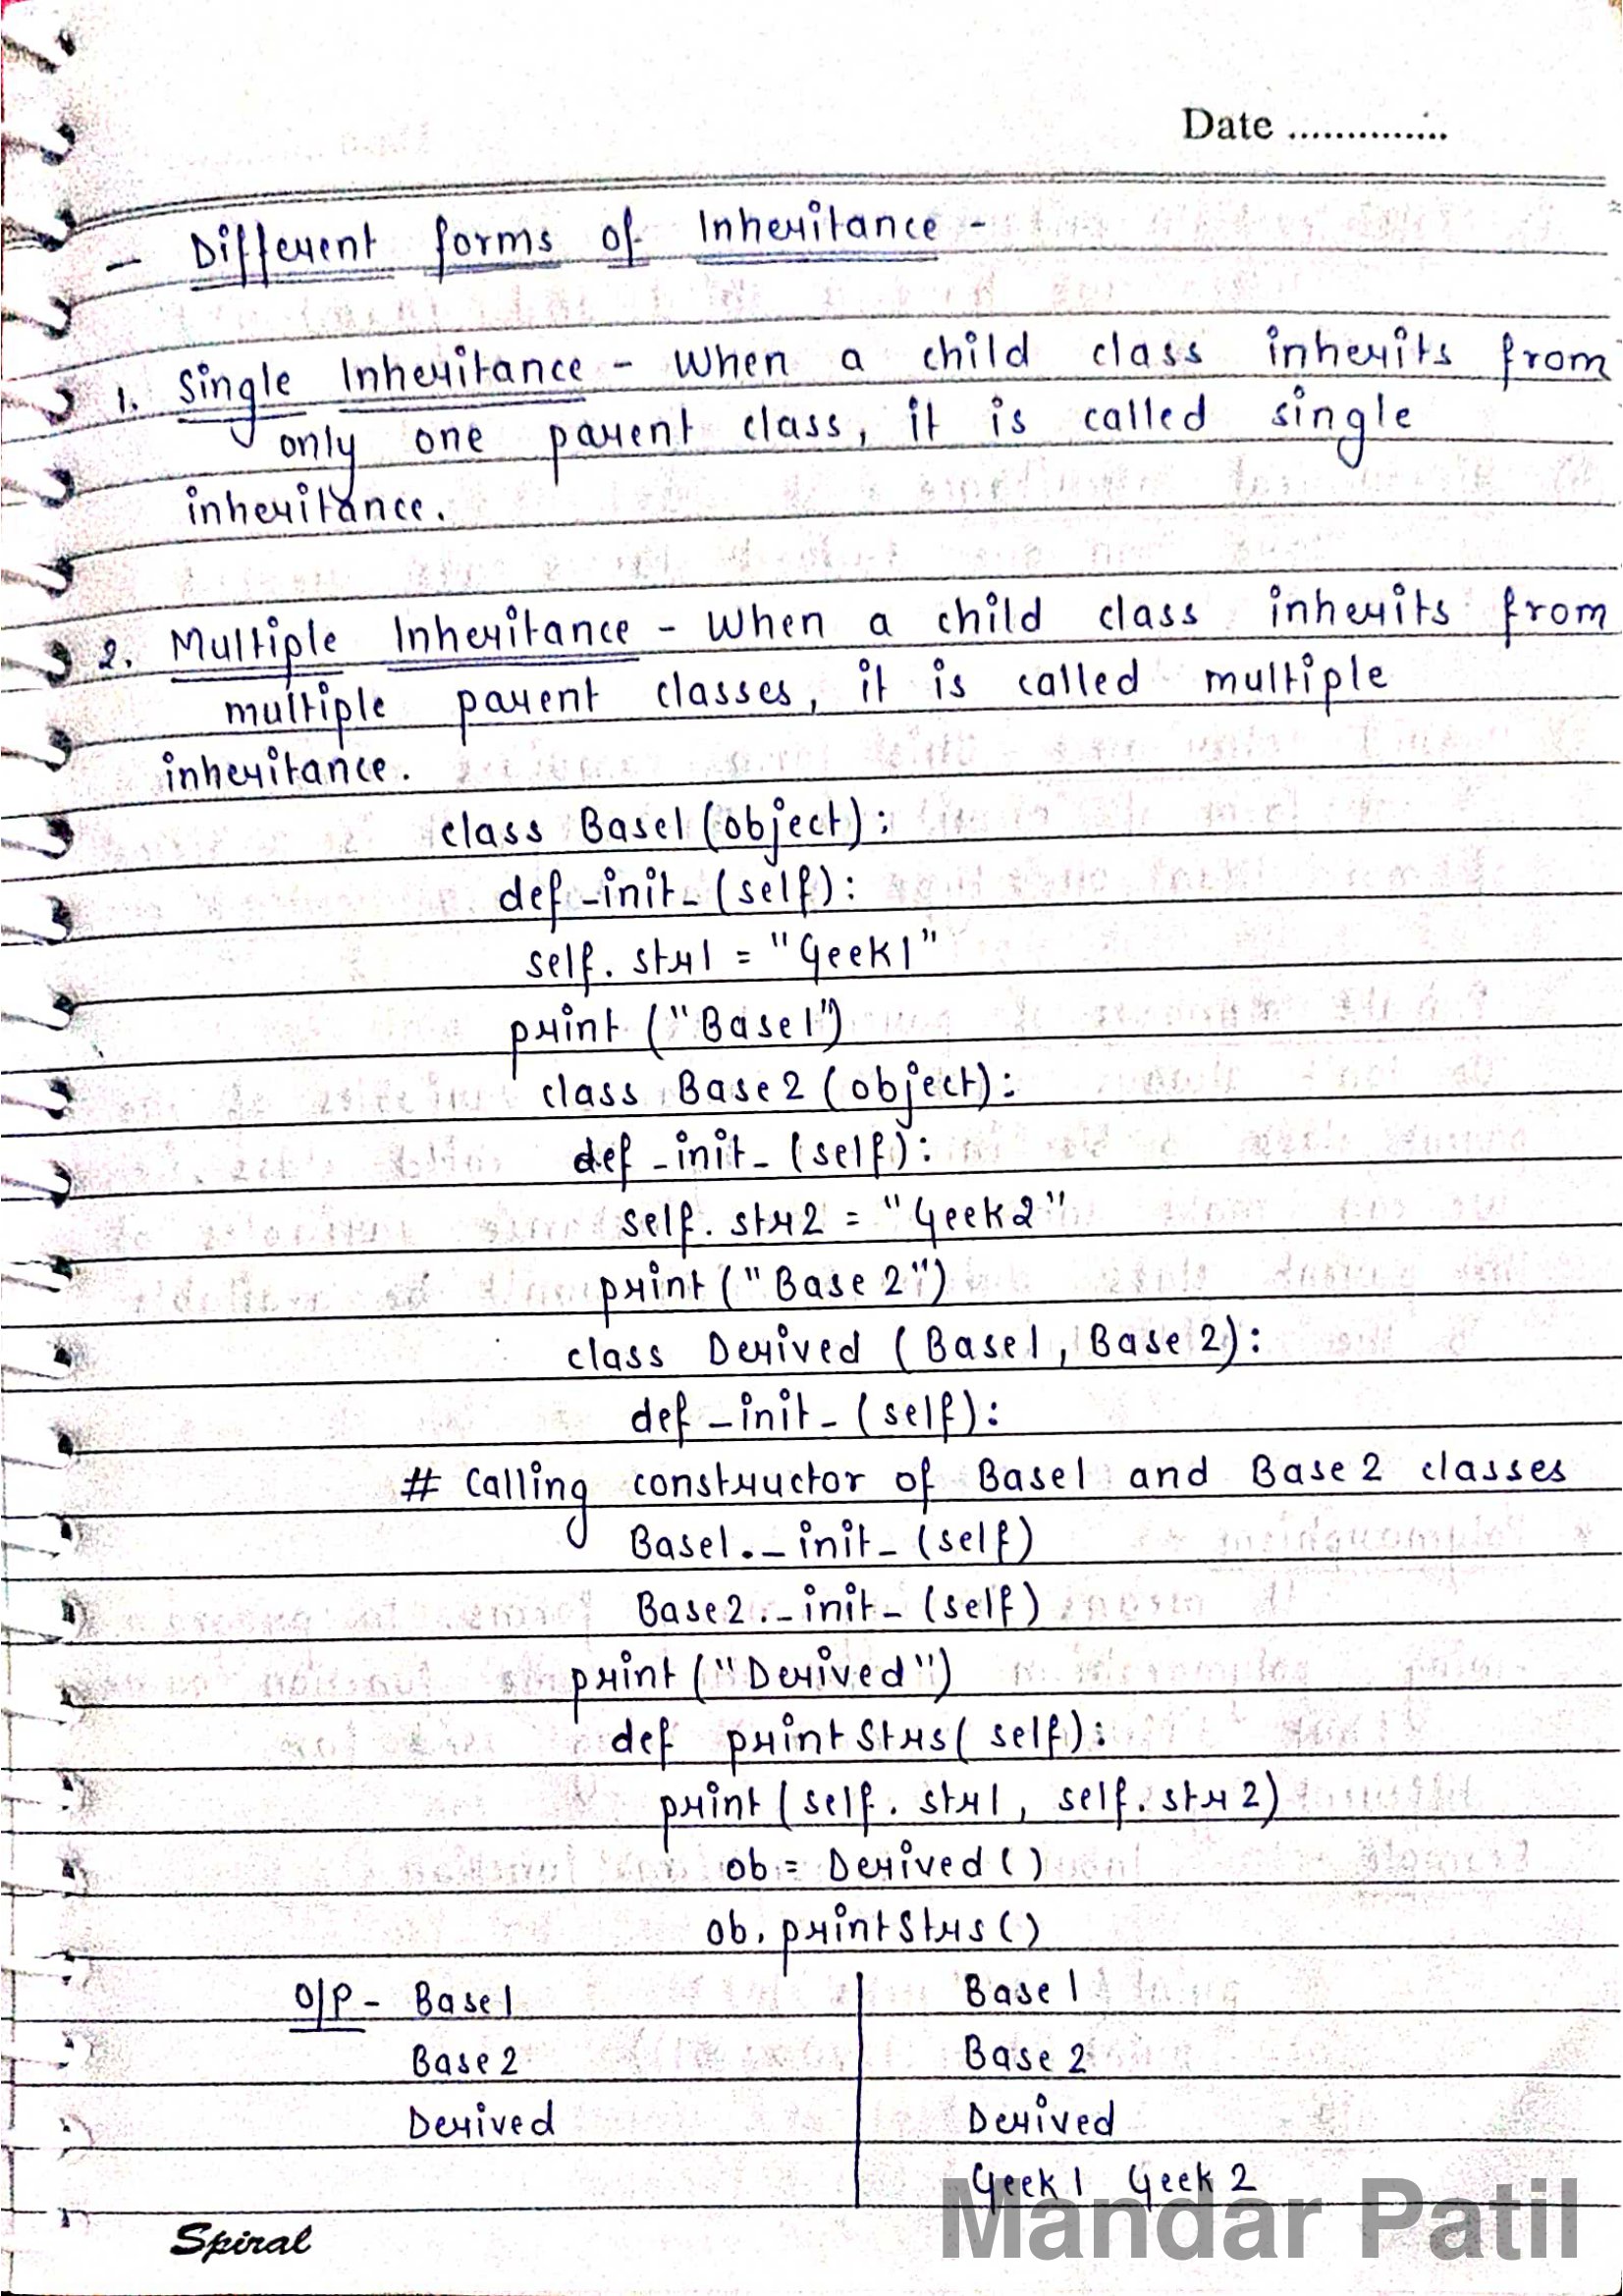 Date ..............
- Different forms of Inheritance -
1. Single Inheritance - When a child class inherits from
only one parent class, it is called single
inheritance.
2. Multiple Inheritance - When a child class inherits from
multiple parent classes, it is called multiple
inheritance.
class Base1(object):
def _init_(self):
self.str1 = "Geek1"
print ("Base1")
class Base2(object):
def _init_(self):
self.str2 = "Geek2"
print("Base2")
class Derived (Base1, Base2):
def _init_(self):
# Calling constructor of Base1 and Base2 classes
Base1._init_(self)
Base2._init_(self)
print("Derived")
def printStrs(self):
print(self.str1, self.str2)
ob = Derived()
ob.printStrs()
O/P - Base1 Base1
Base2 Base2
Derived Derived
Geek1 Geek2
Spiral
Mandar Patil